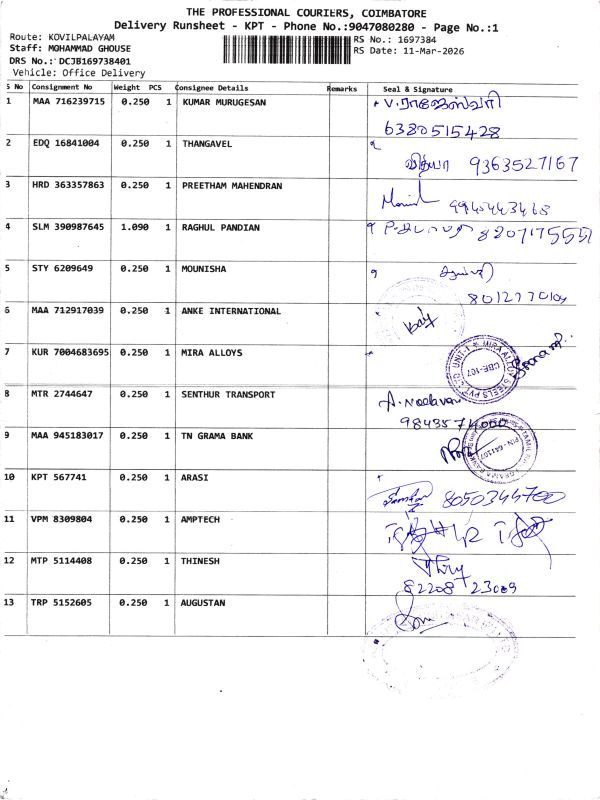 THE PROFESSIONAL COURIERS, COIMBATORE
Delivery Runsheet - KPT - Phone No.:9047080280 - Page No.:1
Route: KOVILPALAYAM
Staff: MOHAMMAD GHOUSE
DRS No.: DCJB169738401
Vehicle: Office Delivery
RS No.: 1697384
RS Date: 11-Mar-2026
S No Consignment No Weight PCS Consignee Details Remarks Seal & Signature
1 MAA 716239715 0.250 1 KUMAR MURUGESAN V. ராஜேஸ்வரி
6380515428
2 EDQ 16841004 0.250 1 THANGAVEL
வித்யா 9363527167
3 HRD 363357863 0.250 1 PREETHAM MAHENDRAN
4 SLM 390987645 1.090 1 RAGHUL PANDIAN
5 STY 6209649 0.250 1 MOUNISHA
6 MAA 712917039 0.250 1 ANKE INTERNATIONAL
7 KUR 7004683695 0.250 1 MIRA ALLOYS
MIRA ALLOY STEELS PVT. LTD. UNIT-1
CBE-107
8 MTR 2744647 0.250 1 SENTHUR TRANSPORT
9843574000
9 MAA 945183017 0.250 1 TN GRAMA BANK
PIN - 641107
10 KPT 567741 0.250 1 ARASI
8050344700
11 VPM 8309804 0.250 1 AMPTECH
12 MTP 5114408 0.250 1 THINESH
82208 23009
13 TRP 5152605 0.250 1 AUGUSTAN